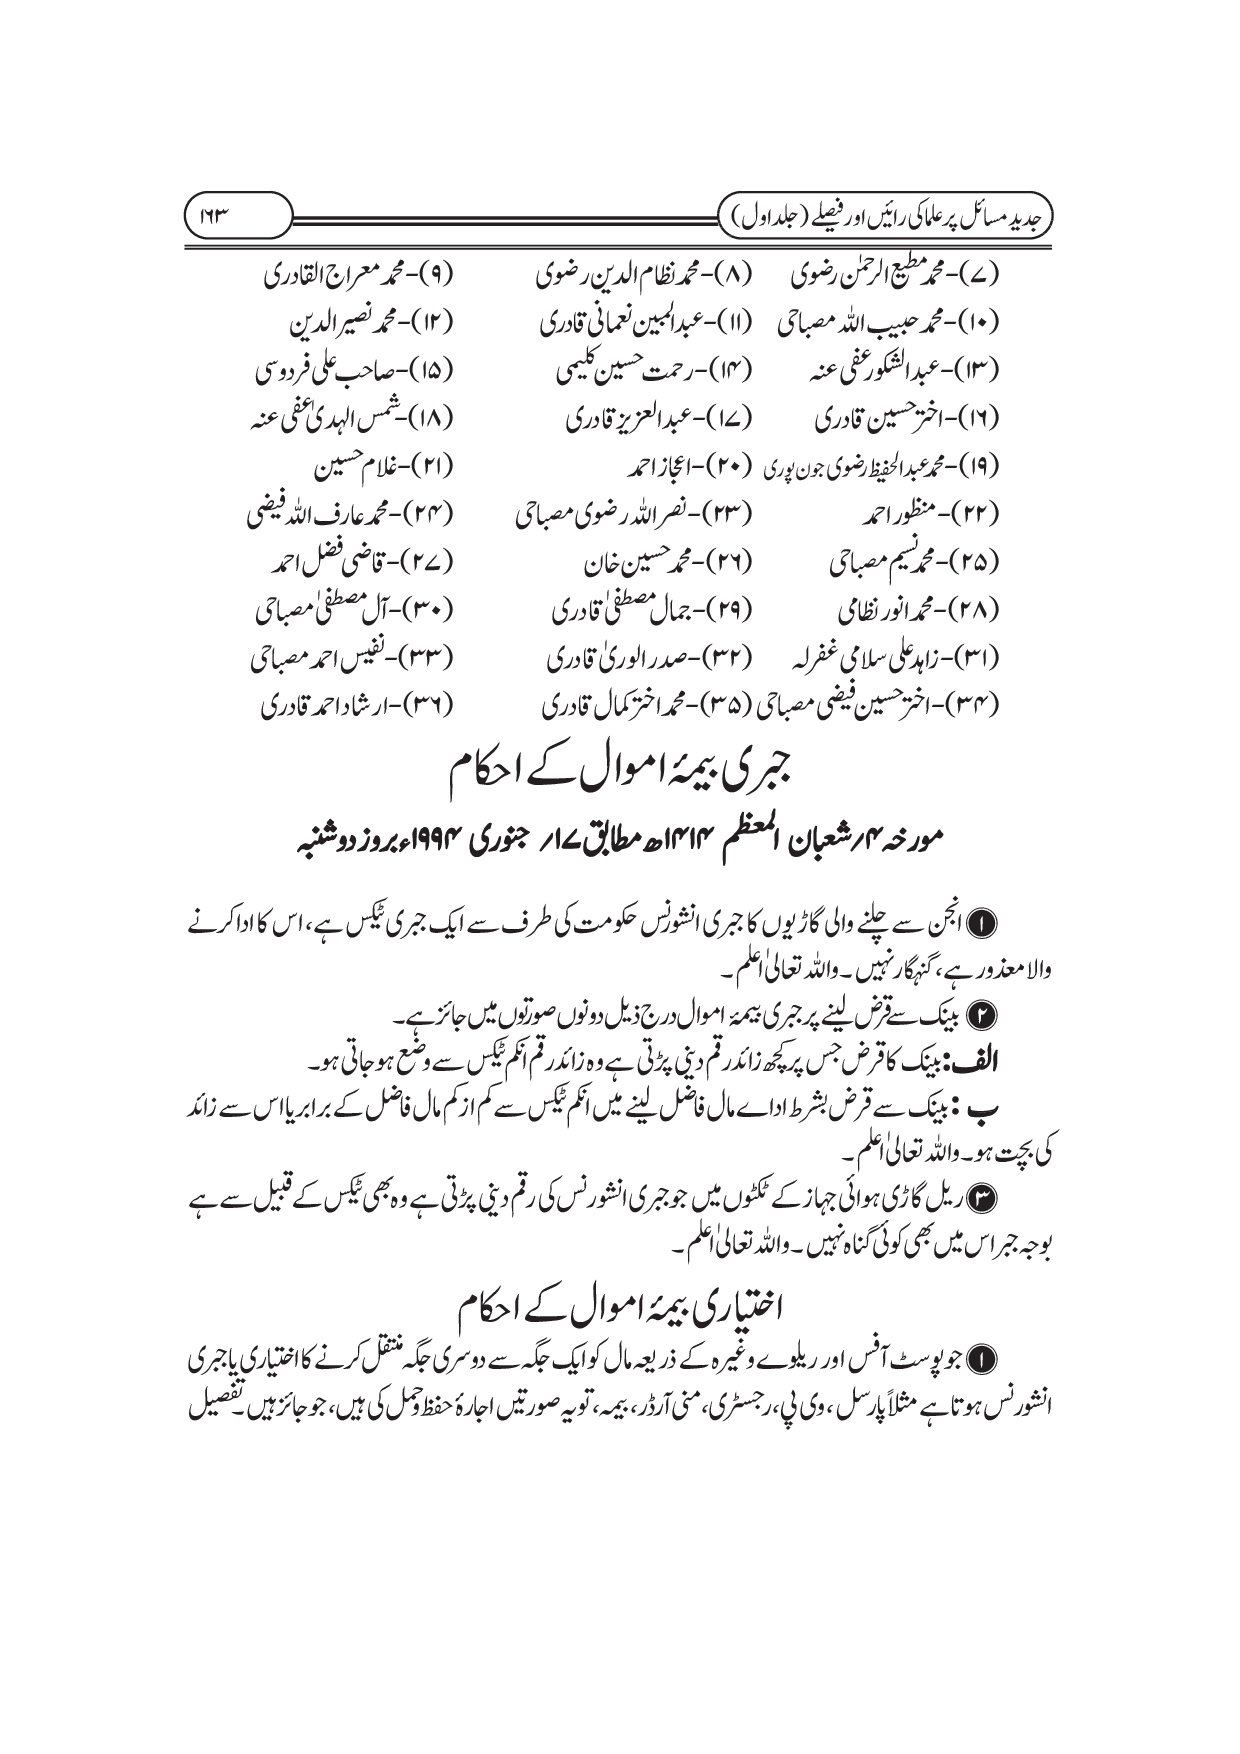 جدید مسائل پر علما کی رائیں اور فیصلے (جلد اول) ۱۶۳
(۷)-محمد مطیع الرحمٰن رضوی (۸)-محمد نظام الدین رضوی (۹)-محمد معراج القادری
(۱۰)-محمد حبیب اللہ مصباحی (۱۱)-عبدالمبین نعمانی قادری (۱۲)-محمد نصیر الدین
(۱۳)-عبدالشکور عفی عنہ (۱۴)-رحمت حسین کلیمی (۱۵)-صاحب علی فردوسی
(۱۶)-اختر حسین قادری (۱۷)-عبدالعزیز قادری (۱۸)-شمس الہدیٰ عفی عنہ
(۱۹)-محمد عبدالحفیظ رضوی جون پوری (۲۰)-اعجاز احمد (۲۱)-غلام حسین
(۲۲)-منظور احمد (۲۳)-نصر اللہ رضوی مصباحی (۲۴)-محمد عارف اللہ فیضی
(۲۵)-محمد نسیم مصباحی (۲۶)-محمد حسین خان (۲۷)-قاضی فضل احمد
(۲۸)-محمد انور نظامی (۲۹)-جمال مصطفیٰ قادری (۳۰)-آل مصطفیٰ مصباحی
(۳۱)-زاہد علی سلامی غفرلہ (۳۲)-صدر الوریٰ قادری (۳۳)-نفیس احمد مصباحی
(۳۴)-اختر حسین فیضی مصباحی (۳۵)-محمد اختر کمال قادری (۳۶)-ارشاد احمد قادری
جبری بیمۂ اموال کے احکام
مورخہ ۴؍شعبان المعظم ۱۴۱۴ھ مطابق ۱۷؍ جنوری ۱۹۹۴ء بروز دوشنبہ
❶ انجن سے چلنے والی گاڑیوں کا جبری انشورنس حکومت کی طرف سے ایک جبری ٹیکس ہے، اس کا ادا کرنے
والا معذور ہے، گنہگار نہیں۔ واللہ تعالیٰ اعلم۔
❷ بینک سے قرض لینے پر جبری بیمۂ اموال درج ذیل دونوں صورتوں میں جائز ہے۔
الف: بینک کا قرض جس پر کچھ زائد رقم دینی پڑتی ہے وہ زائد رقم انکم ٹیکس سے وضع ہو جاتی ہو۔
ب : بینک سے قرض بشرط اداے مال فاضل لینے میں انکم ٹیکس سے کم از کم مال فاضل کے برابر یا اس سے زائد
کی بچت ہو۔ واللہ تعالیٰ اعلم۔
❸ ریل گاڑی ہوائی جہاز کے ٹکٹوں میں جو جبری انشورنس کی رقم دینی پڑتی ہے وہ بھی ٹیکس کے قبیل سے ہے
بوجہ جبر اس میں بھی کوئی گناہ نہیں۔ واللہ تعالیٰ اعلم۔
اختیاری بیمۂ اموال کے احکام
❶ جو پوسٹ آفس اور ریلوے وغیرہ کے ذریعہ مال کو ایک جگہ سے دوسری جگہ منتقل کرنے کا اختیاری یا جبری
انشورنس ہوتا ہے مثلاً پارسل، وی پی، رجسٹری، منی آرڈر، بیمہ، تو یہ صورتیں اجارۂ حفظ و حمل کی ہیں، جو جائز ہیں۔ تفصیل